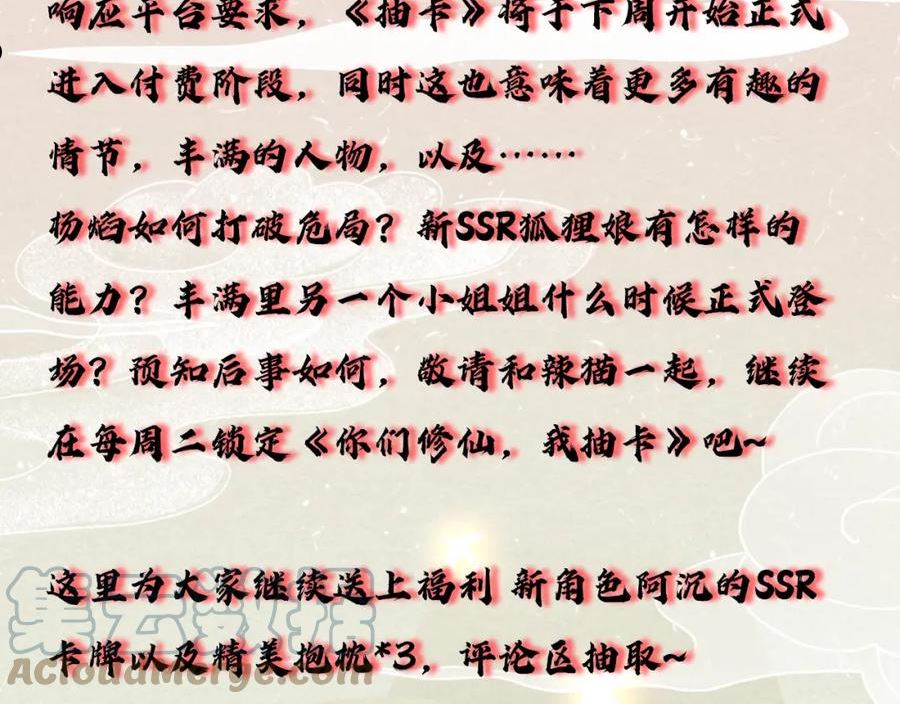 响应平台要求，《抽卡》将于下周开始正式
进入付费阶段，同时这也意味着更多有趣的
情节，丰满的人物，以及……
杨焰如何打破危局？新SSR狐狸娘有怎样的
能力？丰满里另一个小姐姐什么时候正式登
场？预知后事如何，敬请和辣猫一起，继续
在每周二锁定《你们修仙，我抽卡》吧~
这里为大家继续送上福利 新角色阿沉的SSR
卡牌以及精美抱枕*3，评论区抽取~
集云数据
Acloudmerge.com